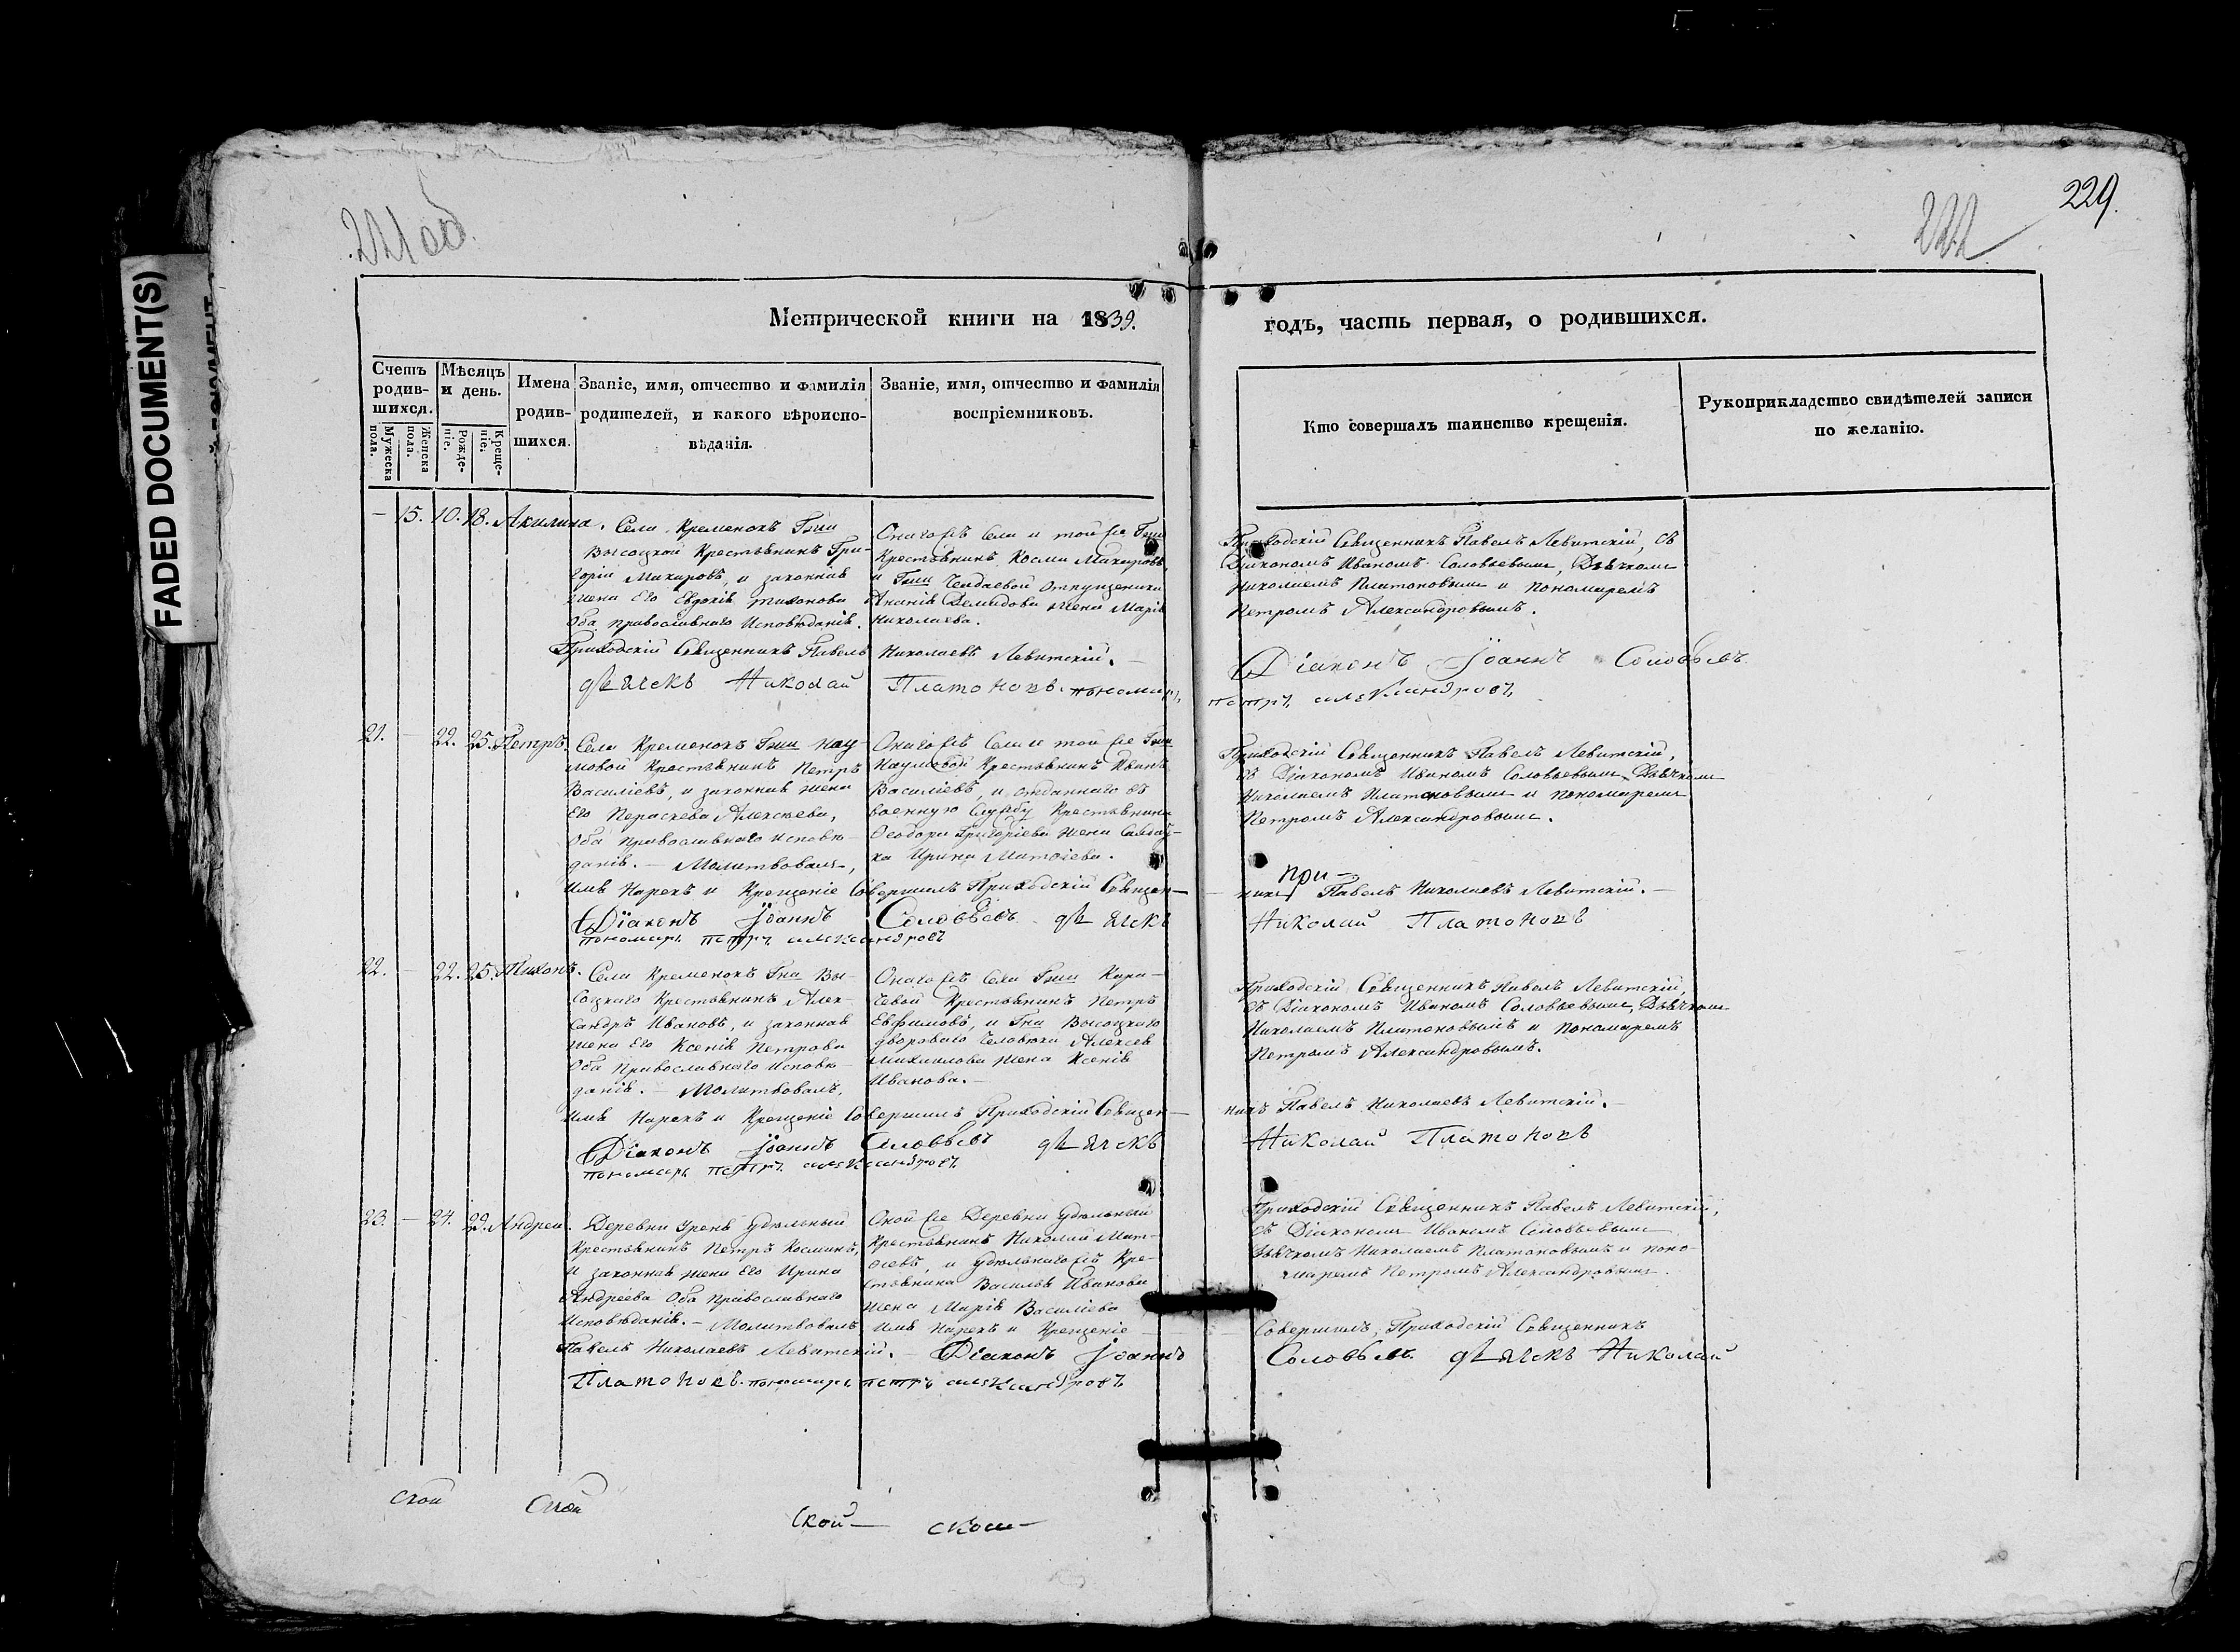 FADED DOCUMENT(S)
221 об.
222
229.
Метрической книги на 1839.
годъ, часть первая, о родившихся.
Счетъ родив-шихся.
Мужеска пола.
Женска пола.
Мѣсяцъ и день.
Рожде-ніе.
Креще-ніе.
Имена родив-шихся.
Званіе, имя, отчество и фамилія
родителей, и какого вѣроиспо-
вѣданія.
Званіе, имя, отчество и фамилія
воспріемниковъ.
Кто совершалъ таинство крещенія.
Рукоприкладство свидѣтелей записи
по желанію.
— 15. 10. 18. Акилина.
Села Кременокъ Гжи
Высоцкой Крестьянинъ Гри-
горій Макаровъ, и законная
жена Его Евдокія Тихонова
Оба православнаго Исповѣданія.
Онагожъ Села и той же Гжи
Крестьянинъ Косма Макаровъ
и Гжи Чаадаевой Отпущенника
Ананія Демидова жена Марія
Николаева.
Приходскій Священникъ Павелъ Левитскій, съ
Діакономъ Иваномъ Соловьевымъ, Дьячкомъ
Николаемъ Платоновымъ и пономаремъ
Петромъ Александровымъ.
Приходскій Священникъ Павелъ Николаевъ Левитскій. —
Діаконъ Іоаннъ Соловьевъ
дьячекъ Николай Платоновъ. пономарь
петръ александровъ
21. — 22. 25. Петръ.
Села Кременокъ Гжи Нау-
мовой Крестьянинъ Петръ
Василіевъ, и законная жена
Его Параскева Алексѣева,
Оба православнаго исповѣ-
данія. — Молитвовалъ,
Онагожъ Села и той же Гжи
Наумовой Крестьянинъ Иванъ
Василіевъ, и отданнаго въ
военную Службу Крестьянина
Ѳеодора Григоріева жена Салдат-
ка Ирина Матѳіева.
Приходскій Священникъ Павелъ Левитскій,
съ Діакономъ Иваномъ Соловьевымъ, Дьячкомъ
Николаемъ Платоновымъ и пономаремъ
Петромъ Александровымъ.
Имя Нарекъ и Крещеніе Совершилъ Приходскій Священ—
при—
никъ Павелъ Николаевъ Левитскій. —
Діаконъ Іоаннъ Соловьевъ дьячекъ
Николай Платоновъ
пономарь петръ александровъ
22. — 22. 25. Тихонъ.
Села Кременокъ Гна Вы-
соцкаго Крестьянинъ Алек-
сандръ Ивановъ, и законная
жена Его Ксенія Петрова
Оба Православнаго исповѣ-
данія. — Молитвовалъ,
Онагожъ Села Гжи Кара-
чевой Крестьянинъ Петръ
Евфимовъ, и Гна Высоцкаго
двороваго Человѣка Алексея
Михаилова жена Ксенія
Иванова. —
Приходскій Священникъ Павелъ Левитскій,
съ Діакономъ Иваномъ Соловьевымъ, Дьячкомъ
Николаемъ Платоновымъ и пономаремъ
Петромъ Александровымъ.
Имя Нарекъ и Крещеніе Совершилъ Приходскій Священ—
никъ Павелъ Николаевъ Левитскій. —
Діаконъ Іоаннъ Соловьевъ дьячекъ
Николай Платоновъ
пономарь петръ александровъ
23. — 24. 29. Андрей.
Деревни Урень Удѣльный
Крестьянинъ Петръ Косминъ,
и законная жена Его Ирина
Андреева Оба православнаго
исповѣданія. — Молитвовалъ
Оной же Деревни Удѣльный
Крестьянинъ Николай Мат-
ѳіевъ, и удѣльнагожъ Кре-
стьянина Василья Иванова
жена Марія Василіева
Имя Нарекъ и Крещеніе —
Приходскій Священникъ Павелъ Левитскій,
съ Діакономъ Иваномъ Соловьевымъ
Дьячкомъ Николаемъ Платоновымъ и поно-
маремъ Петромъ Александровымъ.
Совершилъ, Приходскій Священникъ
Павелъ Николаевъ Левитскій. — Діаконъ Іоаннъ
Соловьевъ. дьячекъ Николай
Платоновъ. пономарь петръ александровъ
ской
ской
ской—
ской—